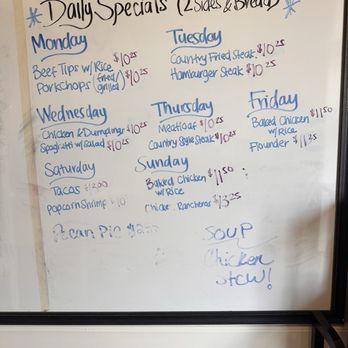 Daily Specials (2 Sides & Bread)
Monday
Beef Tips w/ Rice $10.25
Porkchops (fried/grilled) $10.25
Tuesday
Country Fried Steak $10.25
Hamburger Steak $10.25
Wednesday
Chicken & Dumplings $10.25
Spaghetti w/ Salad $10.25
Thursday
Meatloaf $10.25
Country Style Steak $10.25
Friday
Baked Chicken $11.50
w/ Rice
Flounder $11.25
Saturday
Tacos
Popcorn Shrimp
Sunday
Baked Chicken $11.50
w/ Rice
Rancheros $13.25
Pecan Pie
Soup
Chicken
Stew!